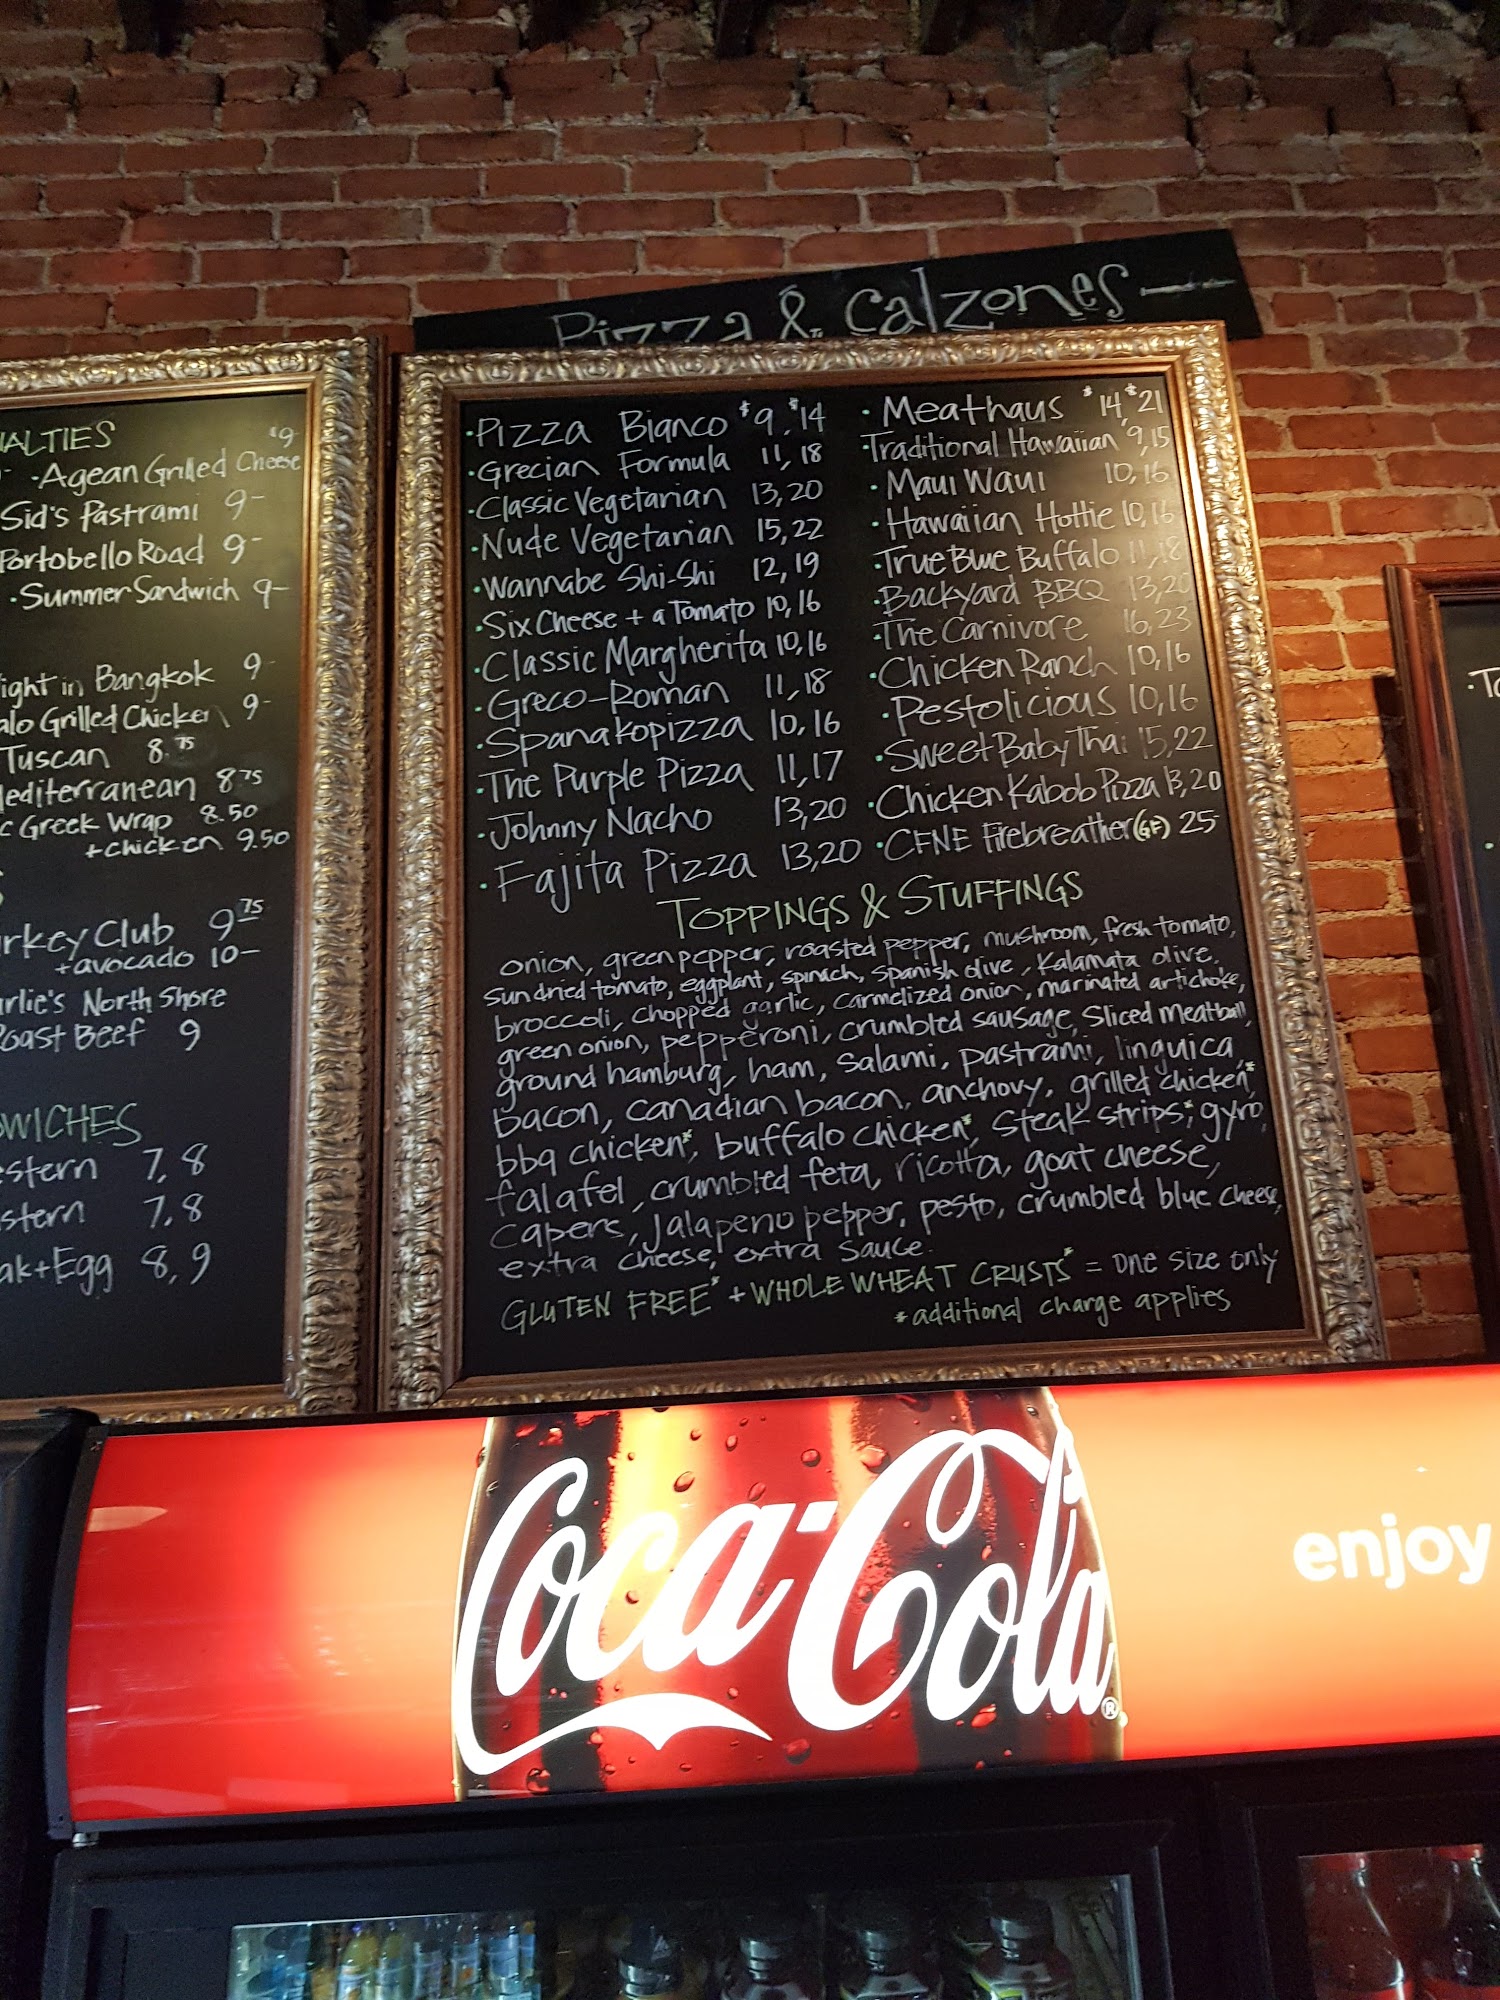 Pizza & Calzones
ALTIES
$9-
Agean Grilled Cheese
Sid's Pastrami 9-
Portobello Road 9-
Summer Sandwich 9-
ight in Bangkok 9-
alo Grilled Chicken 9-
Tuscan 8.75
editerranean 8 75
c Greek Wrap 8.50
+chicken 9.50
rkey Club 9 75
+avocado 10-
arlie's North Shore
oast Beef 9
WICHES
stern 7, 8
stern 7, 8
ak+Egg 8, 9
Pizza Bianco $9, $14
Grecian Formula 11, 18
Classic Vegetarian 13, 20
Nude Vegetarian 15, 22
Wannabe Shi-Shi 12, 19
Six Cheese + a Tomato 10, 16
Classic Margherita 10, 16
Greco-Roman 11, 18
Spanakopizza 10, 16
The Purple Pizza 11, 17
Johnny Nacho 13, 20
Fajita Pizza 13, 20
Meathaus $14, $21
Traditional Hawaiian 9, 15
Maui Waui 10, 16
Hawaiian Hottie 10, 16
True Blue Buffalo 11, 18
Backyard BBQ 13, 20
The Carnivore 16, 23
Chicken Ranch 10, 16
Pestolicious 10, 16
Sweet Baby Thai 15, 22
Chicken Kabob Pizza 13, 20
CFNE Firebreather (GF) 25-
TOPPINGS & STUFFINGS
onion, green pepper, roasted pepper, mushroom, fresh tomato,
sundried tomato, eggplant, spinach, spanish olive, Kalamata olive,
broccoli, chopped garlic, carmelized onion, marinated artichoke,
green onion, pepperoni, crumbled sausage, sliced meatball,
ground hamburg, ham, salami, pastrami, linguica,
bacon, canadian bacon, anchovy, grilled chicken*,
bbq chicken*, buffalo chicken*, steak strips*, gyro,
falafel, crumbled feta, ricotta, goat cheese,
capers, jalapeno pepper, pesto, crumbled blue cheese,
extra cheese, extra sauce.
GLUTEN FREE* + WHOLE WHEAT CRUSTS* = one size only
*additional charge applies
Coca-Cola ®
enjoy